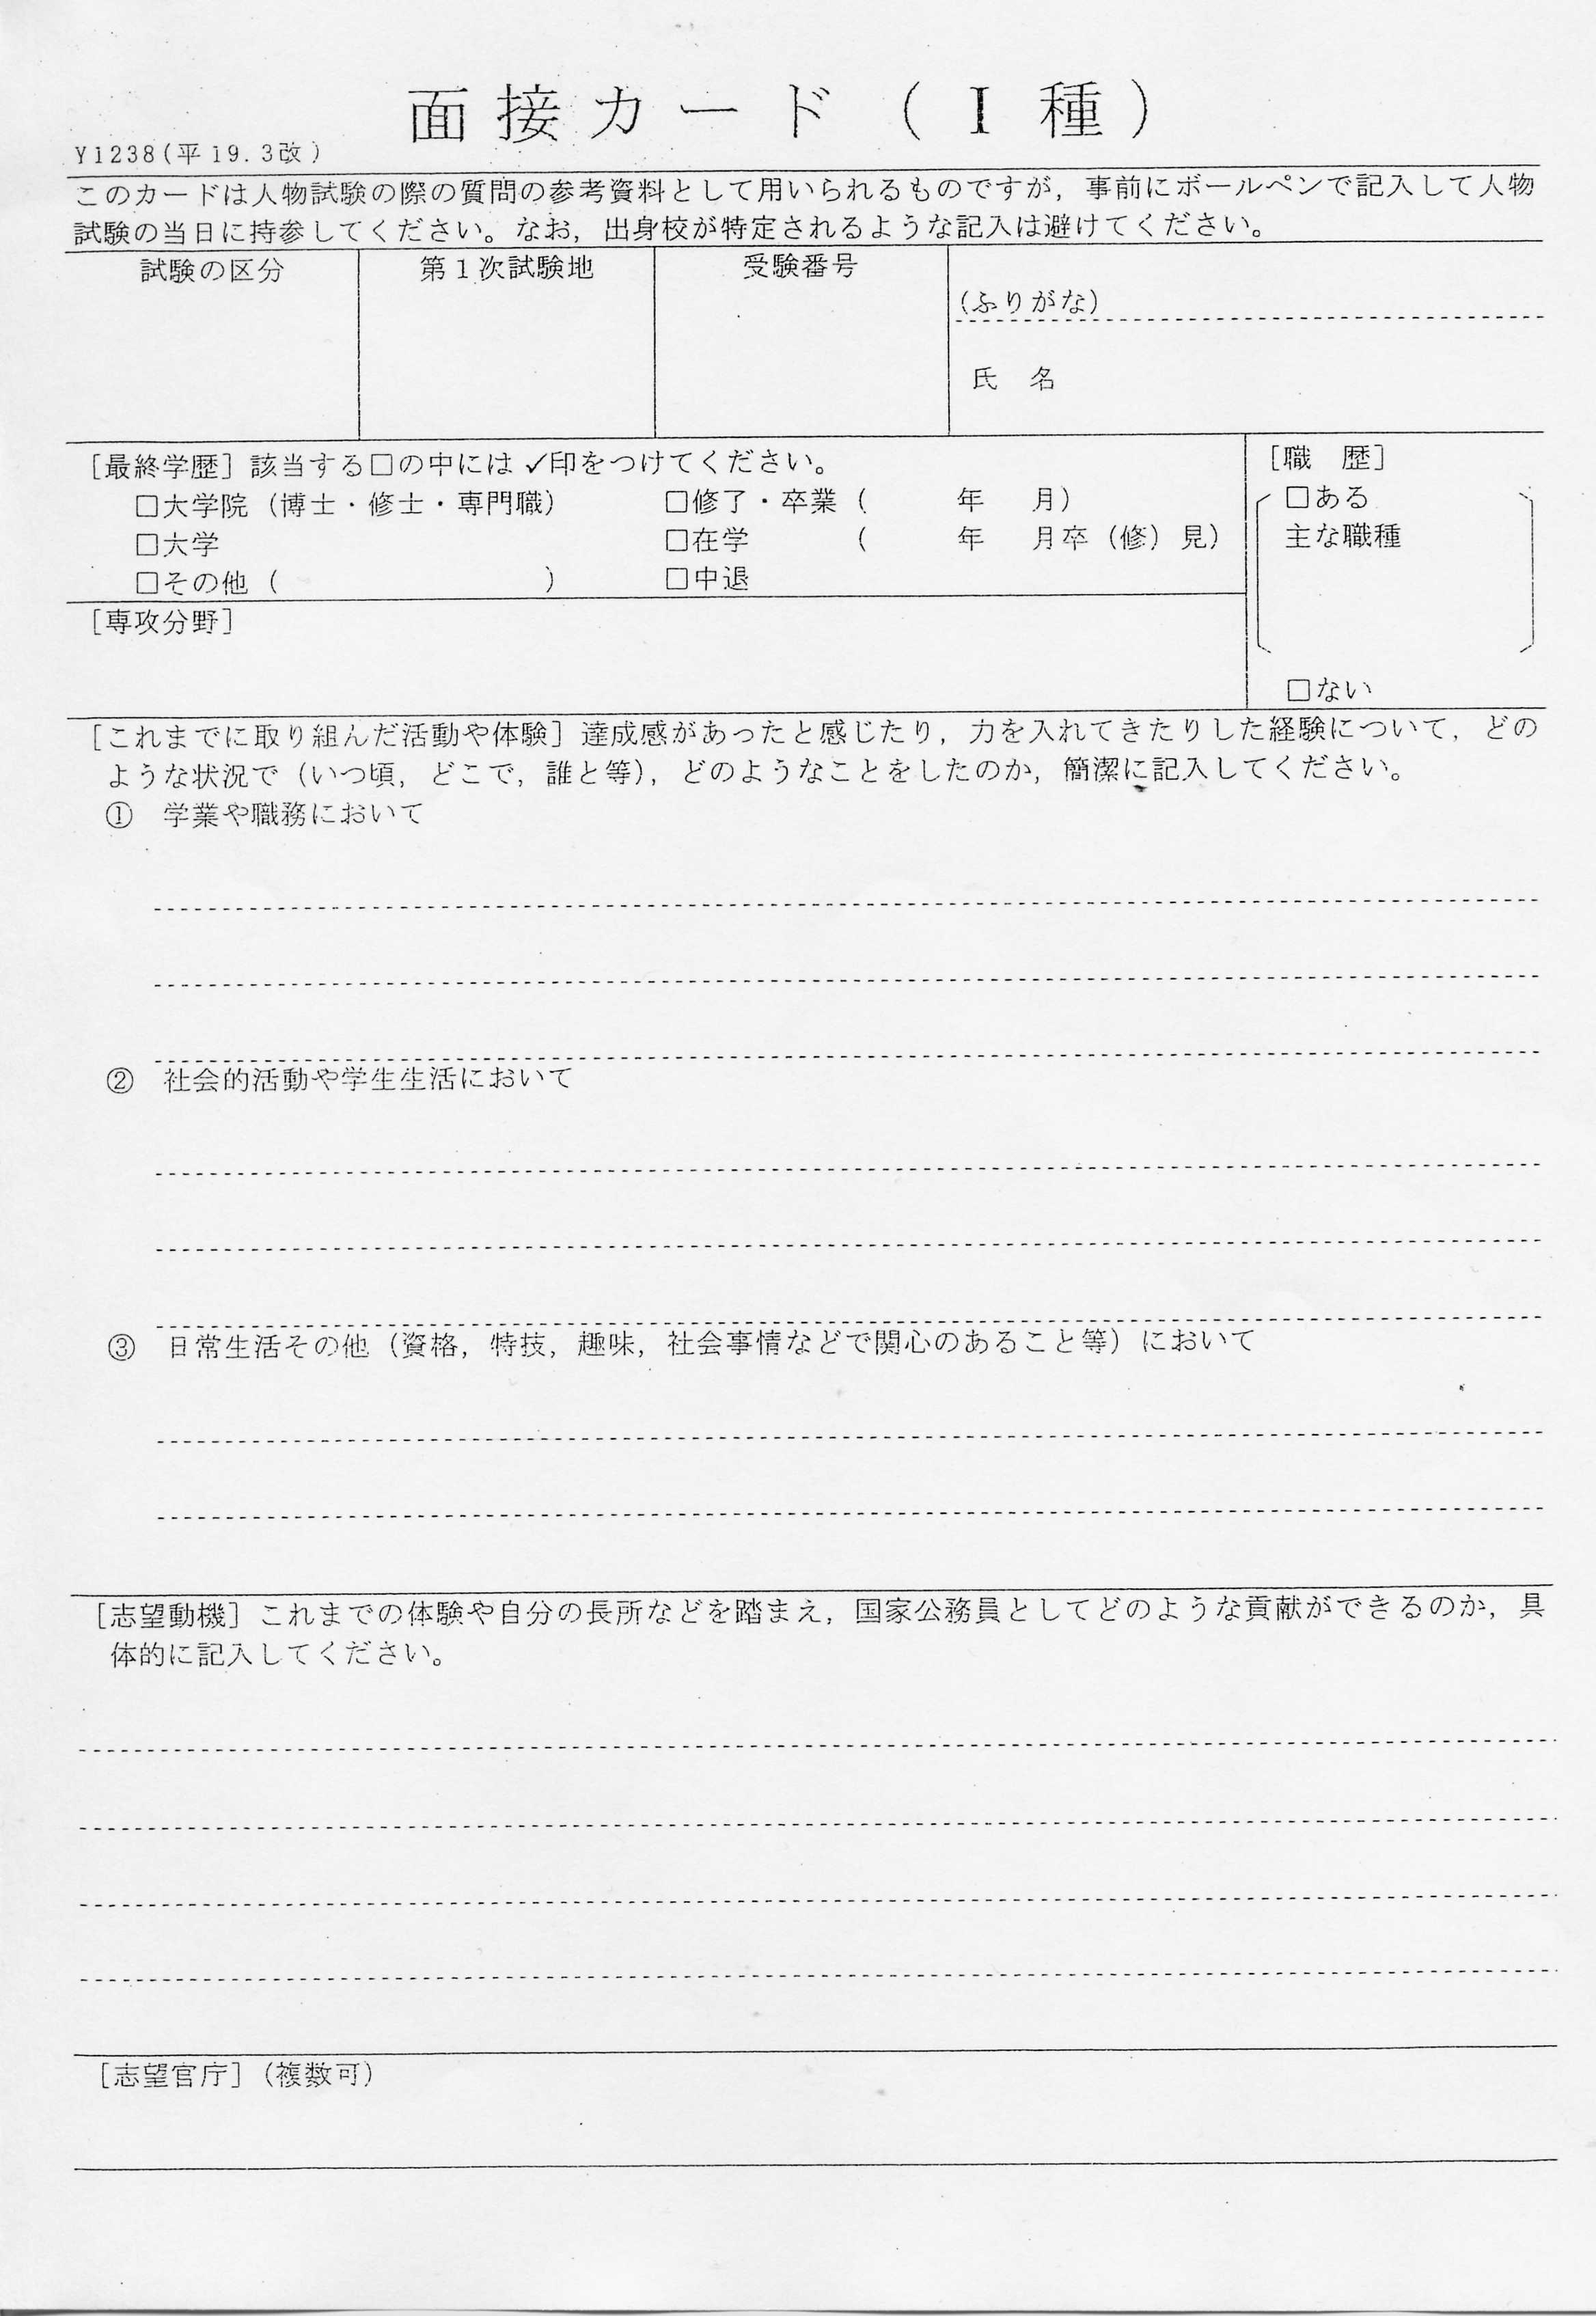 面接カード（Ⅰ種）
Y1238(平19.3改)
このカードは人物試験の際の質問の参考資料として用いられるものですが，事前にボールペンで記入して人物
試験の当日に持参してください。なお，出身校が特定されるような記入は避けてください。
試験の区分 第１次試験地 受験番号
(ふりがな)
氏 名
[最終学歴] 該当する□の中には✓印をつけてください。
□大学院（博士・修士・専門職） □修了・卒業（ 年 月）
□大学 □在学 （ 年 月卒（修）見）
□その他（ ） □中退
[専攻分野]
[職 歴]
□ある
主な職種
□ない
[これまでに取り組んだ活動や体験] 達成感があったと感じたり，力を入れてきたりした経験について，どの
ような状況で（いつ頃，どこで，誰と等），どのようなことをしたのか，簡潔に記入してください。
① 学業や職務において
② 社会的活動や学生生活において
③ 日常生活その他（資格，特技，趣味，社会事情などで関心のあること等）において
[志望動機] これまでの体験や自分の長所などを踏まえ，国家公務員としてどのような貢献ができるのか，具
体的に記入してください。
[志望官庁]（複数可）